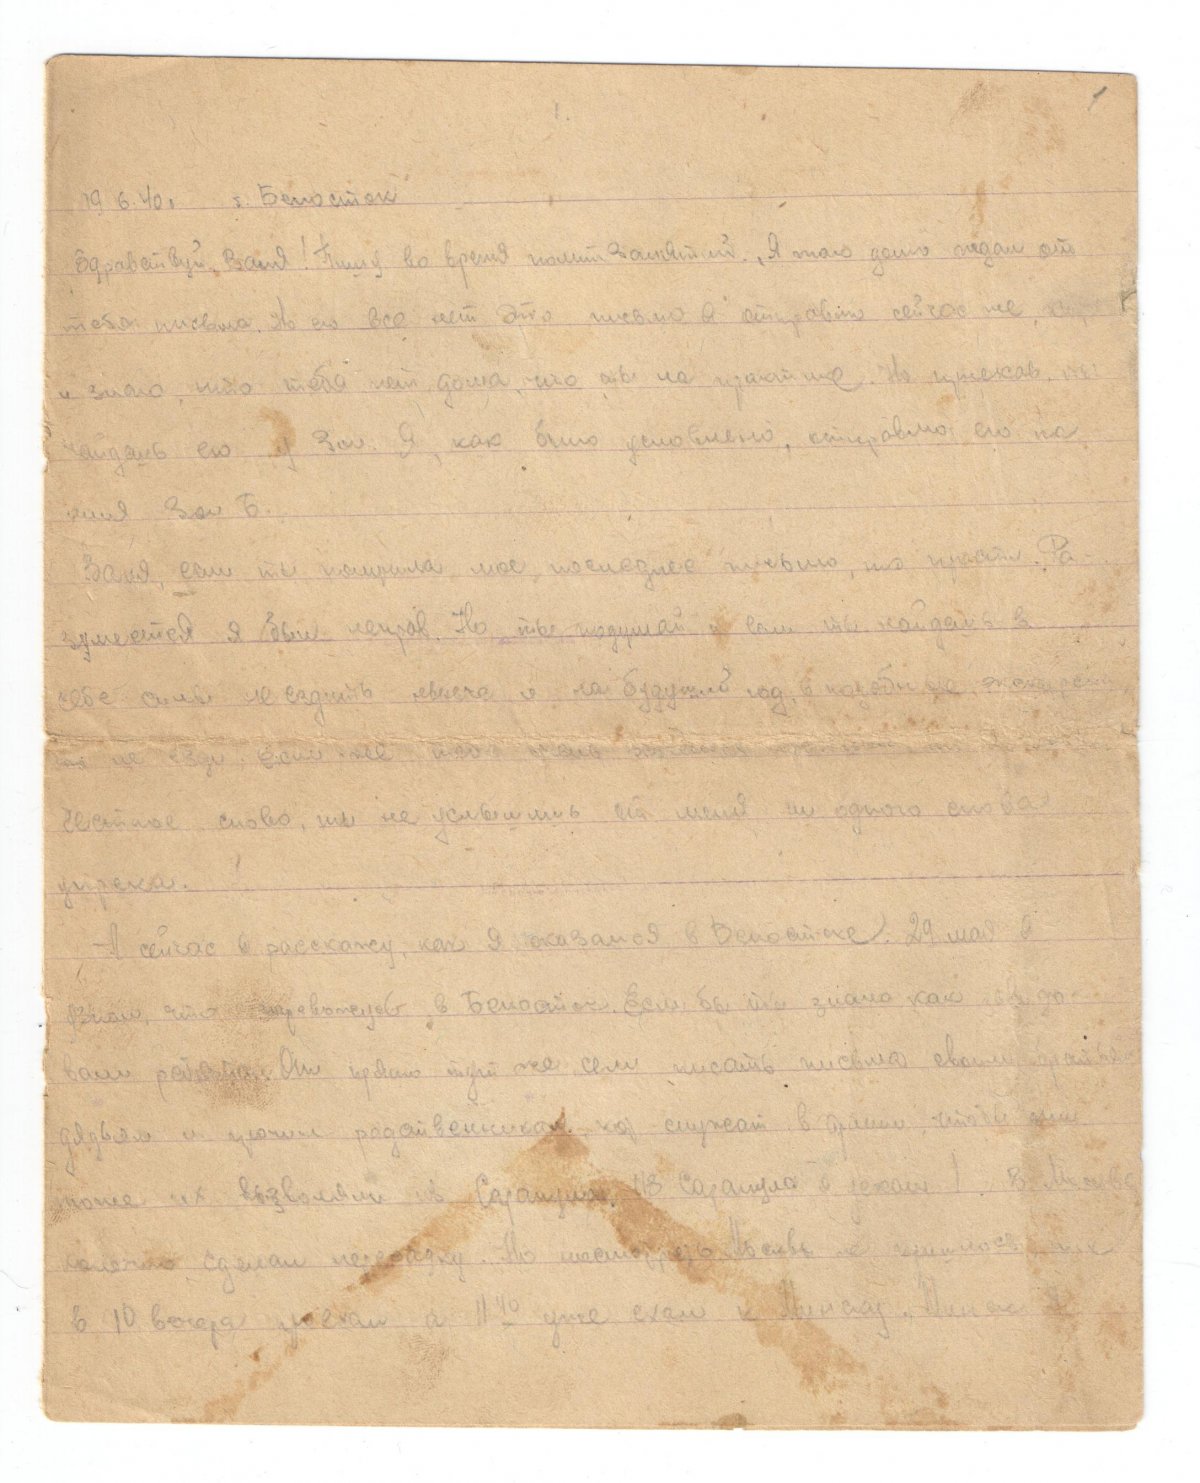 1
19 6.40г г. Белосток
Здравствуй, Валя! Пишу во время политзанятий. Я так долго ждал от
тебя письма. Но его все нет. Это письмо я отправлю сейчас же,
и знаю, что тебя нет дома, что ты на практике. Но приехав, ты
найдешь его у Зои. Я, как было условлено, отправлю его на
имя Зои Б.
Валя, если ты получила мое последнее письмо, то прости. Ра-
зумеется я был неправ. Но ты подумай и если ты найдешь в
себе силы не ездить никуда и на будущий год, в подобные
то не езди. Если же
Честное слово, ты не услышишь от меня ни одного слова
упрека.
А сейчас я расскажу, как я оказался в Белостоке. 29 мая я
узнал, что переводят в Белосток. Если бы ты знала как
вали ребята. Они прямо тут же сели писать письма своим
дядьям и прочим родственникам, кот служат в армии, чтобы они
тоже их вызволяли из Сарапула. Из Сарапула я уехал 1. В Москве
конечно сделал пересадку. Но посмотреть Москвы не пришлось, т.к.
в 10 вечера приехал а 11 40 уже ехал к Минску. Минск я